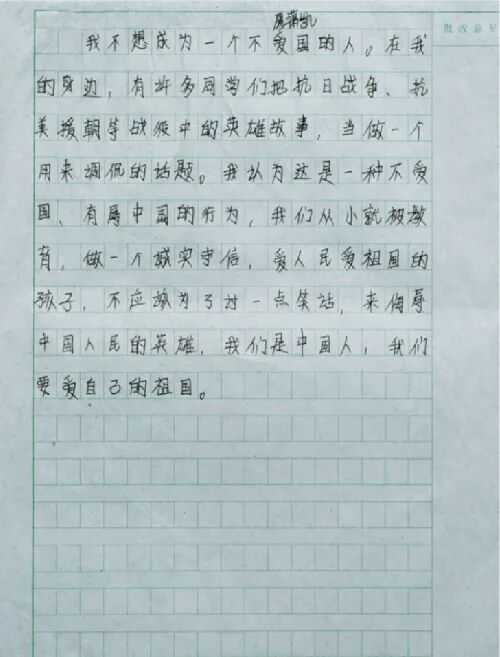 批改意见
我不想成为一个不爱国的人。在我
的身边，有许多同学们把抗日战争、抗
美援朝等战役中的英雄故事，当做一个
用来调侃的话题。我认为这是一种不爱
国、有辱中国的行为，我们从小就被教
育，做一个诚实守信，爱人民爱祖国的
孩子，不应该为了讨一点笑话，来侮辱
中国人民的英雄，我们是中国人，我们
要爱自己的祖国。